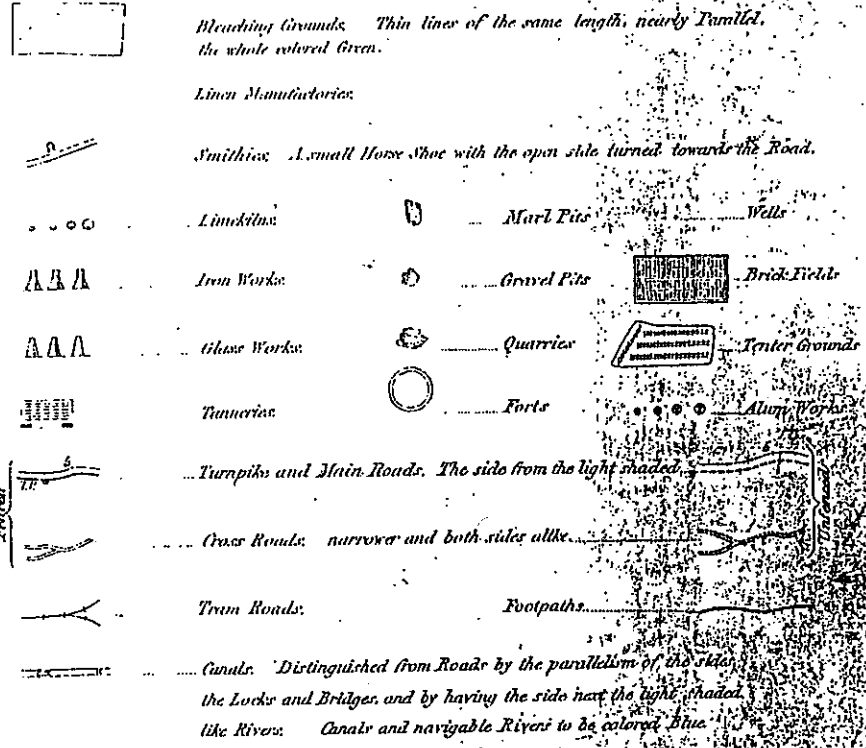 Bleaching Grounds. Thin lines of the same length, nearly Parallel,
the whole colored Green.
Linen Manufactories.
Smithies. A small Horse Shoe with the open side turned towards the Road.
Limekilns. Marl Pits Wells
Iron Works. Gravel Pits Brick Fields
Glass Works. Quarries Tenter Grounds
Tanneries. Forts Alum Works
T.P. Turnpike and Main Roads. The side from the light shaded
Unfenced
Cross Roads. narrower and both sides alike
Tram Roads. Footpaths
Canals. Distinguished from Roads by the parallelism of the sides
the Locks and Bridges, and by having the side next the light shaded
like Rivers. Canals and navigable Rivers to be colored Blue.